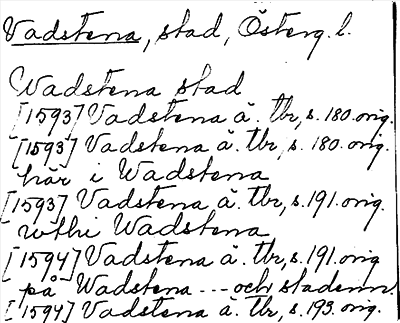 Vadstena, stad, Österg. l.
Wadstena stad
[1593] Vadstena ä. tbr, s. 180. orig.
[1593] Vadstena ä. tbr, s. 180. orig.
här i Wadstena
[1593] Vadstena ä. tbr, s. 191. orig.
wthi Wadstena
[1594] Vadstena ä. tbr, s. 191. orig
på Wadstena --- och stadenn.
[1594] Vadstena ä. tbr, s. 193. orig.